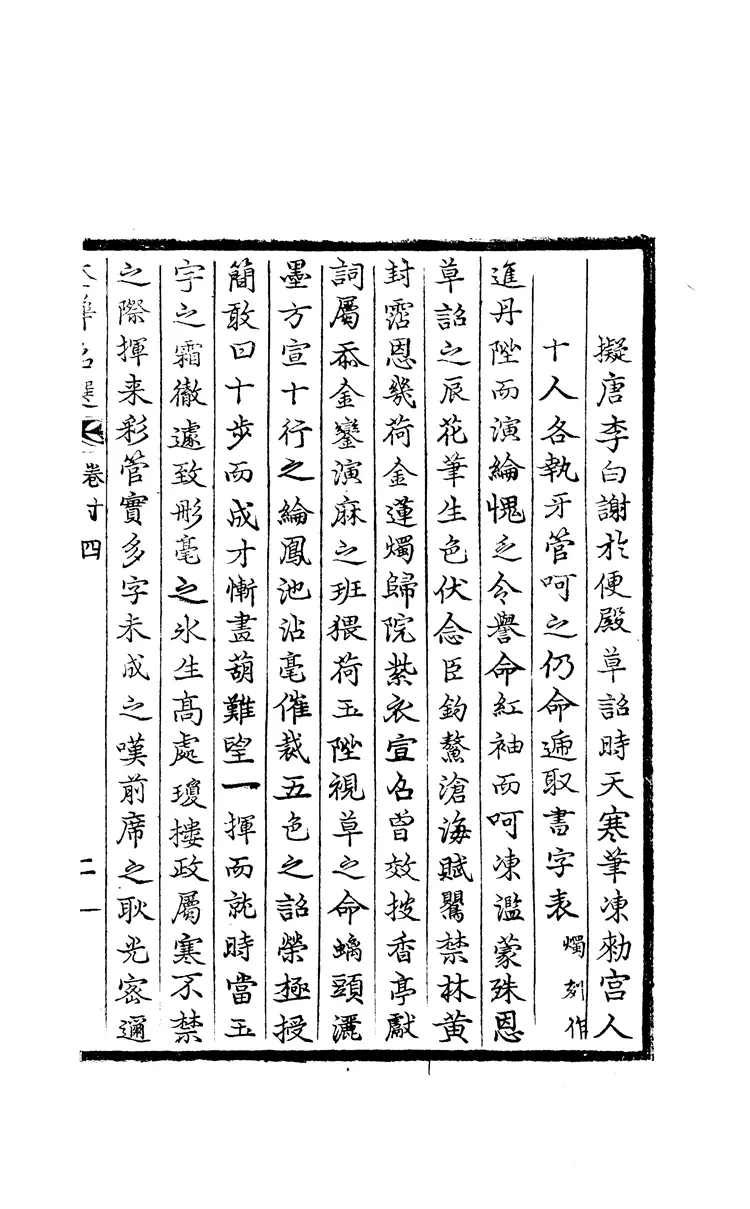 擬唐李白謝於便殿草詔時天寒筆凍勑宫人
十人各執牙管呵之仍命遞取書字表
燭刻作
進丹陛而演綸愧乏令譽命紅袖而呵凍濫蒙殊恩
草詔之辰花筆生色伏念臣釣鰲滄海賦鸎禁林黄
封霑恩幾荷金蓮燭歸院紫衣宣名曾效披香亭獻
詞屬忝金鑾演麻之班猥荷玉陛視草之命螭頭灑
墨方宣十行之綸鳳池沾毫催裁五色之詔榮極授
簡敢曰十步而成才慚畫葫難望一揮而就時當玉
宇之霜徹遽致形毫之氷生高處瓊摟政屬寒不禁
之際揮来彩管實多字未成之嘆前席之耿光密邇
卷寸四
二一